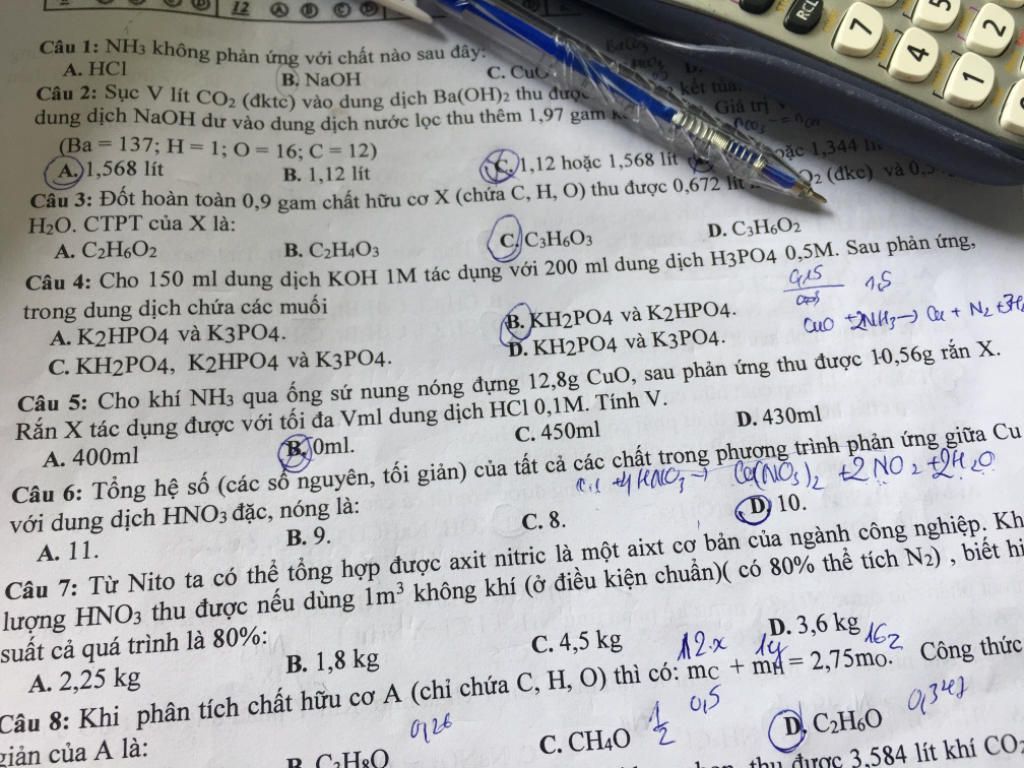 12 A B C D
Câu 1: NH3 không phản ứng với chất nào sau đây:
A. HCl B. NaOH C. CuO
Câu 2: Sục V lít CO2 (đktc) vào dung dịch Ba(OH)2 thu được kết tủa.
dung dịch NaOH dư vào dung dịch nước lọc thu thêm 1,97 gam Giá trị V
(Ba = 137; H = 1; O = 16; C = 12)
A. 1,568 lít B. 1,12 lít C. 1,12 hoặc 1,568 lít hoặc 1,344 lít
Câu 3: Đốt hoàn toàn 0,9 gam chất hữu cơ X (chứa C, H, O) thu được 0,672 lít O2 (đkc) và
H2O. CTPT của X là:
A. C2H6O2 B. C2H4O3 C. C3H6O3 D. C3H6O2
Câu 4: Cho 150 ml dung dịch KOH 1M tác dụng với 200 ml dung dịch H3PO4 0,5M. Sau phản ứng,
trong dung dịch chứa các muối
0,15 1,5
A. K2HPO4 và K3PO4. B. KH2PO4 và K2HPO4.
CuO + 2NH3 → Cu + N2 + 3H2
C. KH2PO4, K2HPO4 và K3PO4. D. KH2PO4 và K3PO4.
Câu 5: Cho khí NH3 qua ống sứ nung nóng đựng 12,8g CuO, sau phản ứng thu được 10,56g rắn X.
Rắn X tác dụng được với tối đa Vml dung dịch HCl 0,1M. Tính V.
A. 400ml B. 0ml. C. 450ml D. 430ml
Câu 6: Tổng hệ số (các số nguyên, tối giản) của tất cả các chất trong phương trình phản ứng giữa Cu
Cu + 4HNO3 → Cu(NO3)2 + 2NO2 + 2H2O
với dung dịch HNO3 đặc, nóng là:
A. 11. B. 9. C. 8. D. 10.
Câu 7: Từ Nito ta có thể tổng hợp được axit nitric là một aixt cơ bản của ngành công nghiệp. Kh
lượng HNO3 thu được nếu dùng 1m3 không khí (ở điều kiện chuẩn)( có 80% thể tích N2) , biết hi
suất cả quá trình là 80%:
A. 2,25 kg B. 1,8 kg C. 4,5 kg D. 3,6 kg
12x 1y 16z
Câu 8: Khi phân tích chất hữu cơ A (chỉ chứa C, H, O) thì có: mC + mH = 2,75mO. Công thức
giản của A là:
0,26 1/2 0,5 0,347
B. C3H8O C. CH4O D. C2H6O
thu được 3,584 lít khí CO2
RCL 7 4 1 5 2